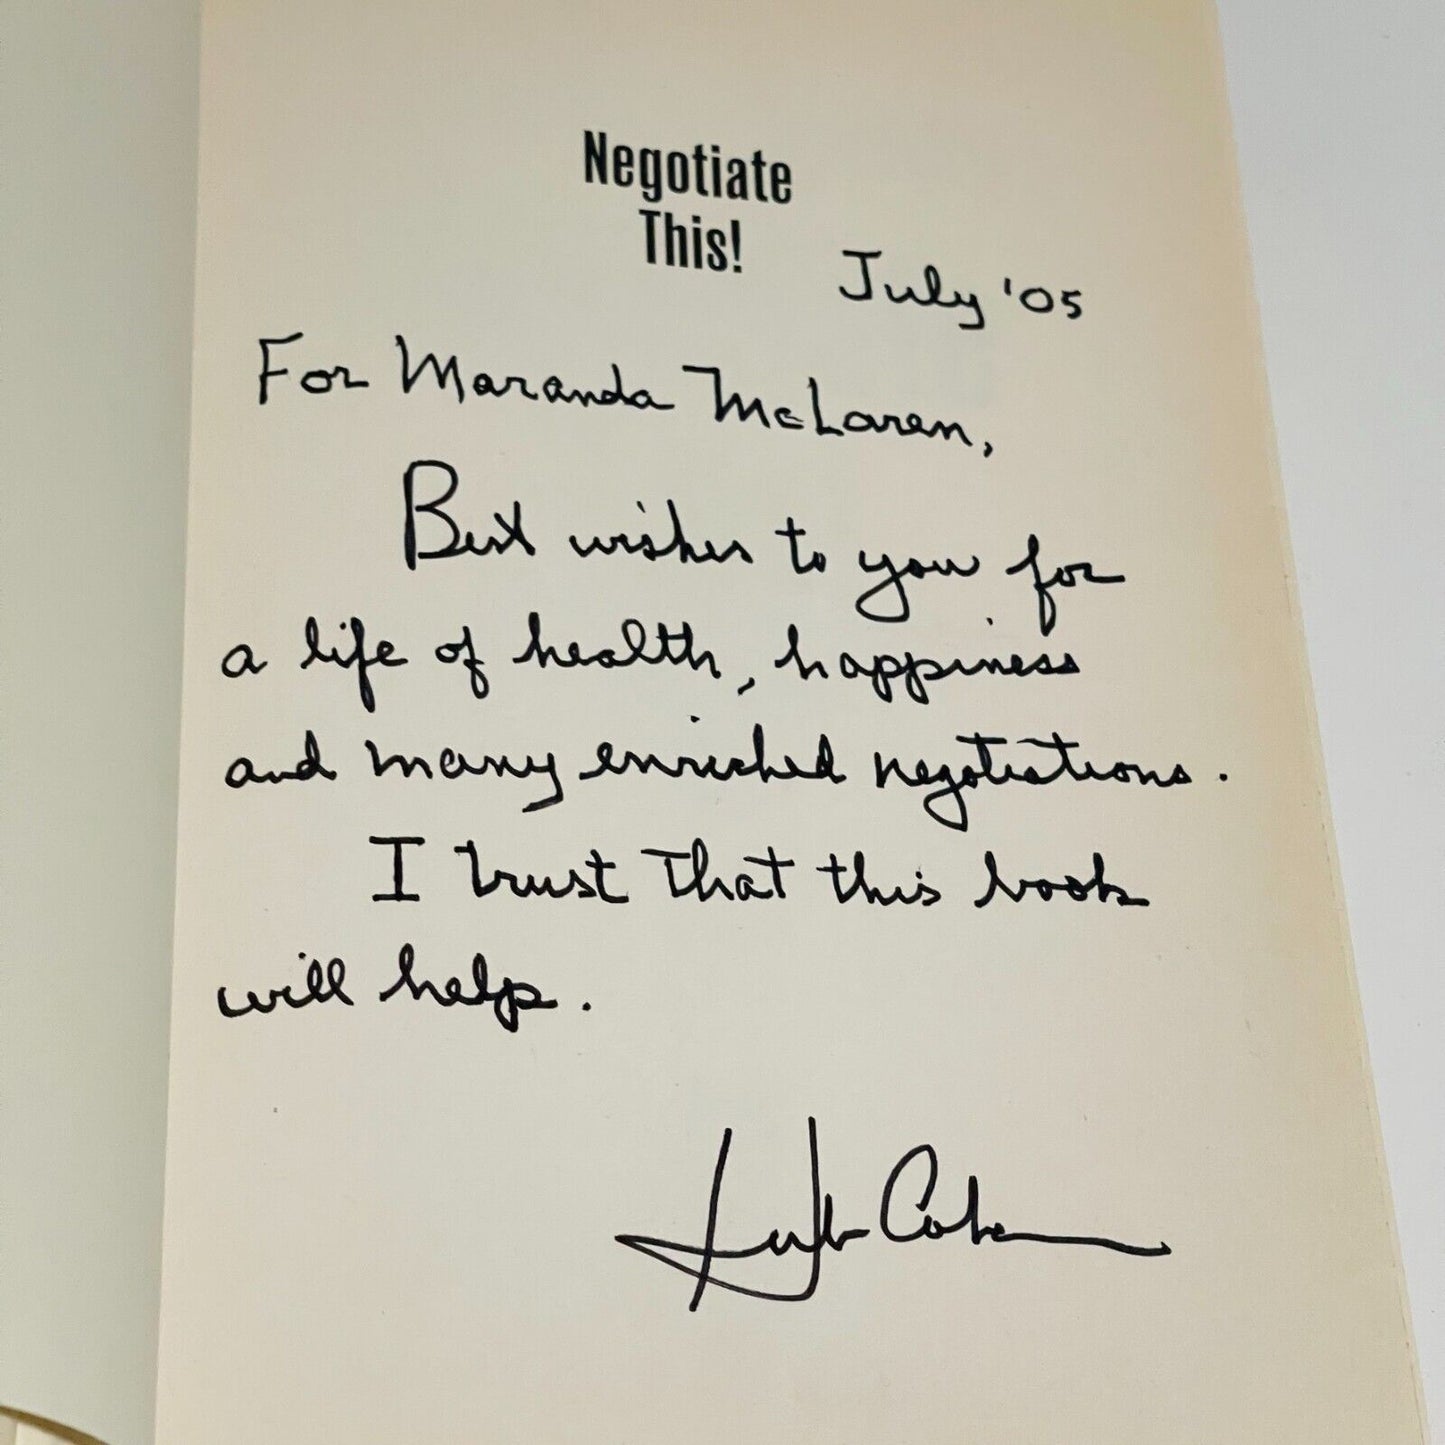 Negotiate
This!
July '05
For Maranda McLaren,
Best wishes to you for
a life of health, happiness
and many enriched negotiations.
I trust that this book
will help.
Herb Cohen